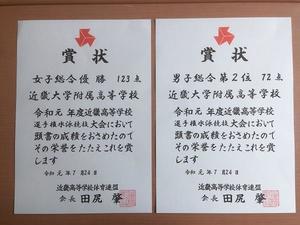 賞状
女子総合優勝 123点
近畿大学附属高等学校
令和元年度近畿高等学校
選手権水泳競技大会において
頭書の成績をおさめたので
その栄誉をたたえこれを賞
します
令和元年7月24日
近畿高等学校体育連盟
会長 田尻 肇
賞状
男子総合第2位 72点
近畿大学附属高等学校
令和元年度近畿高等学校
選手権水泳競技大会において
頭書の成績をおさめたので
その栄誉をたたえこれを賞
します
令和元年7月24日
近畿高等学校体育連盟
会長 田尻 肇